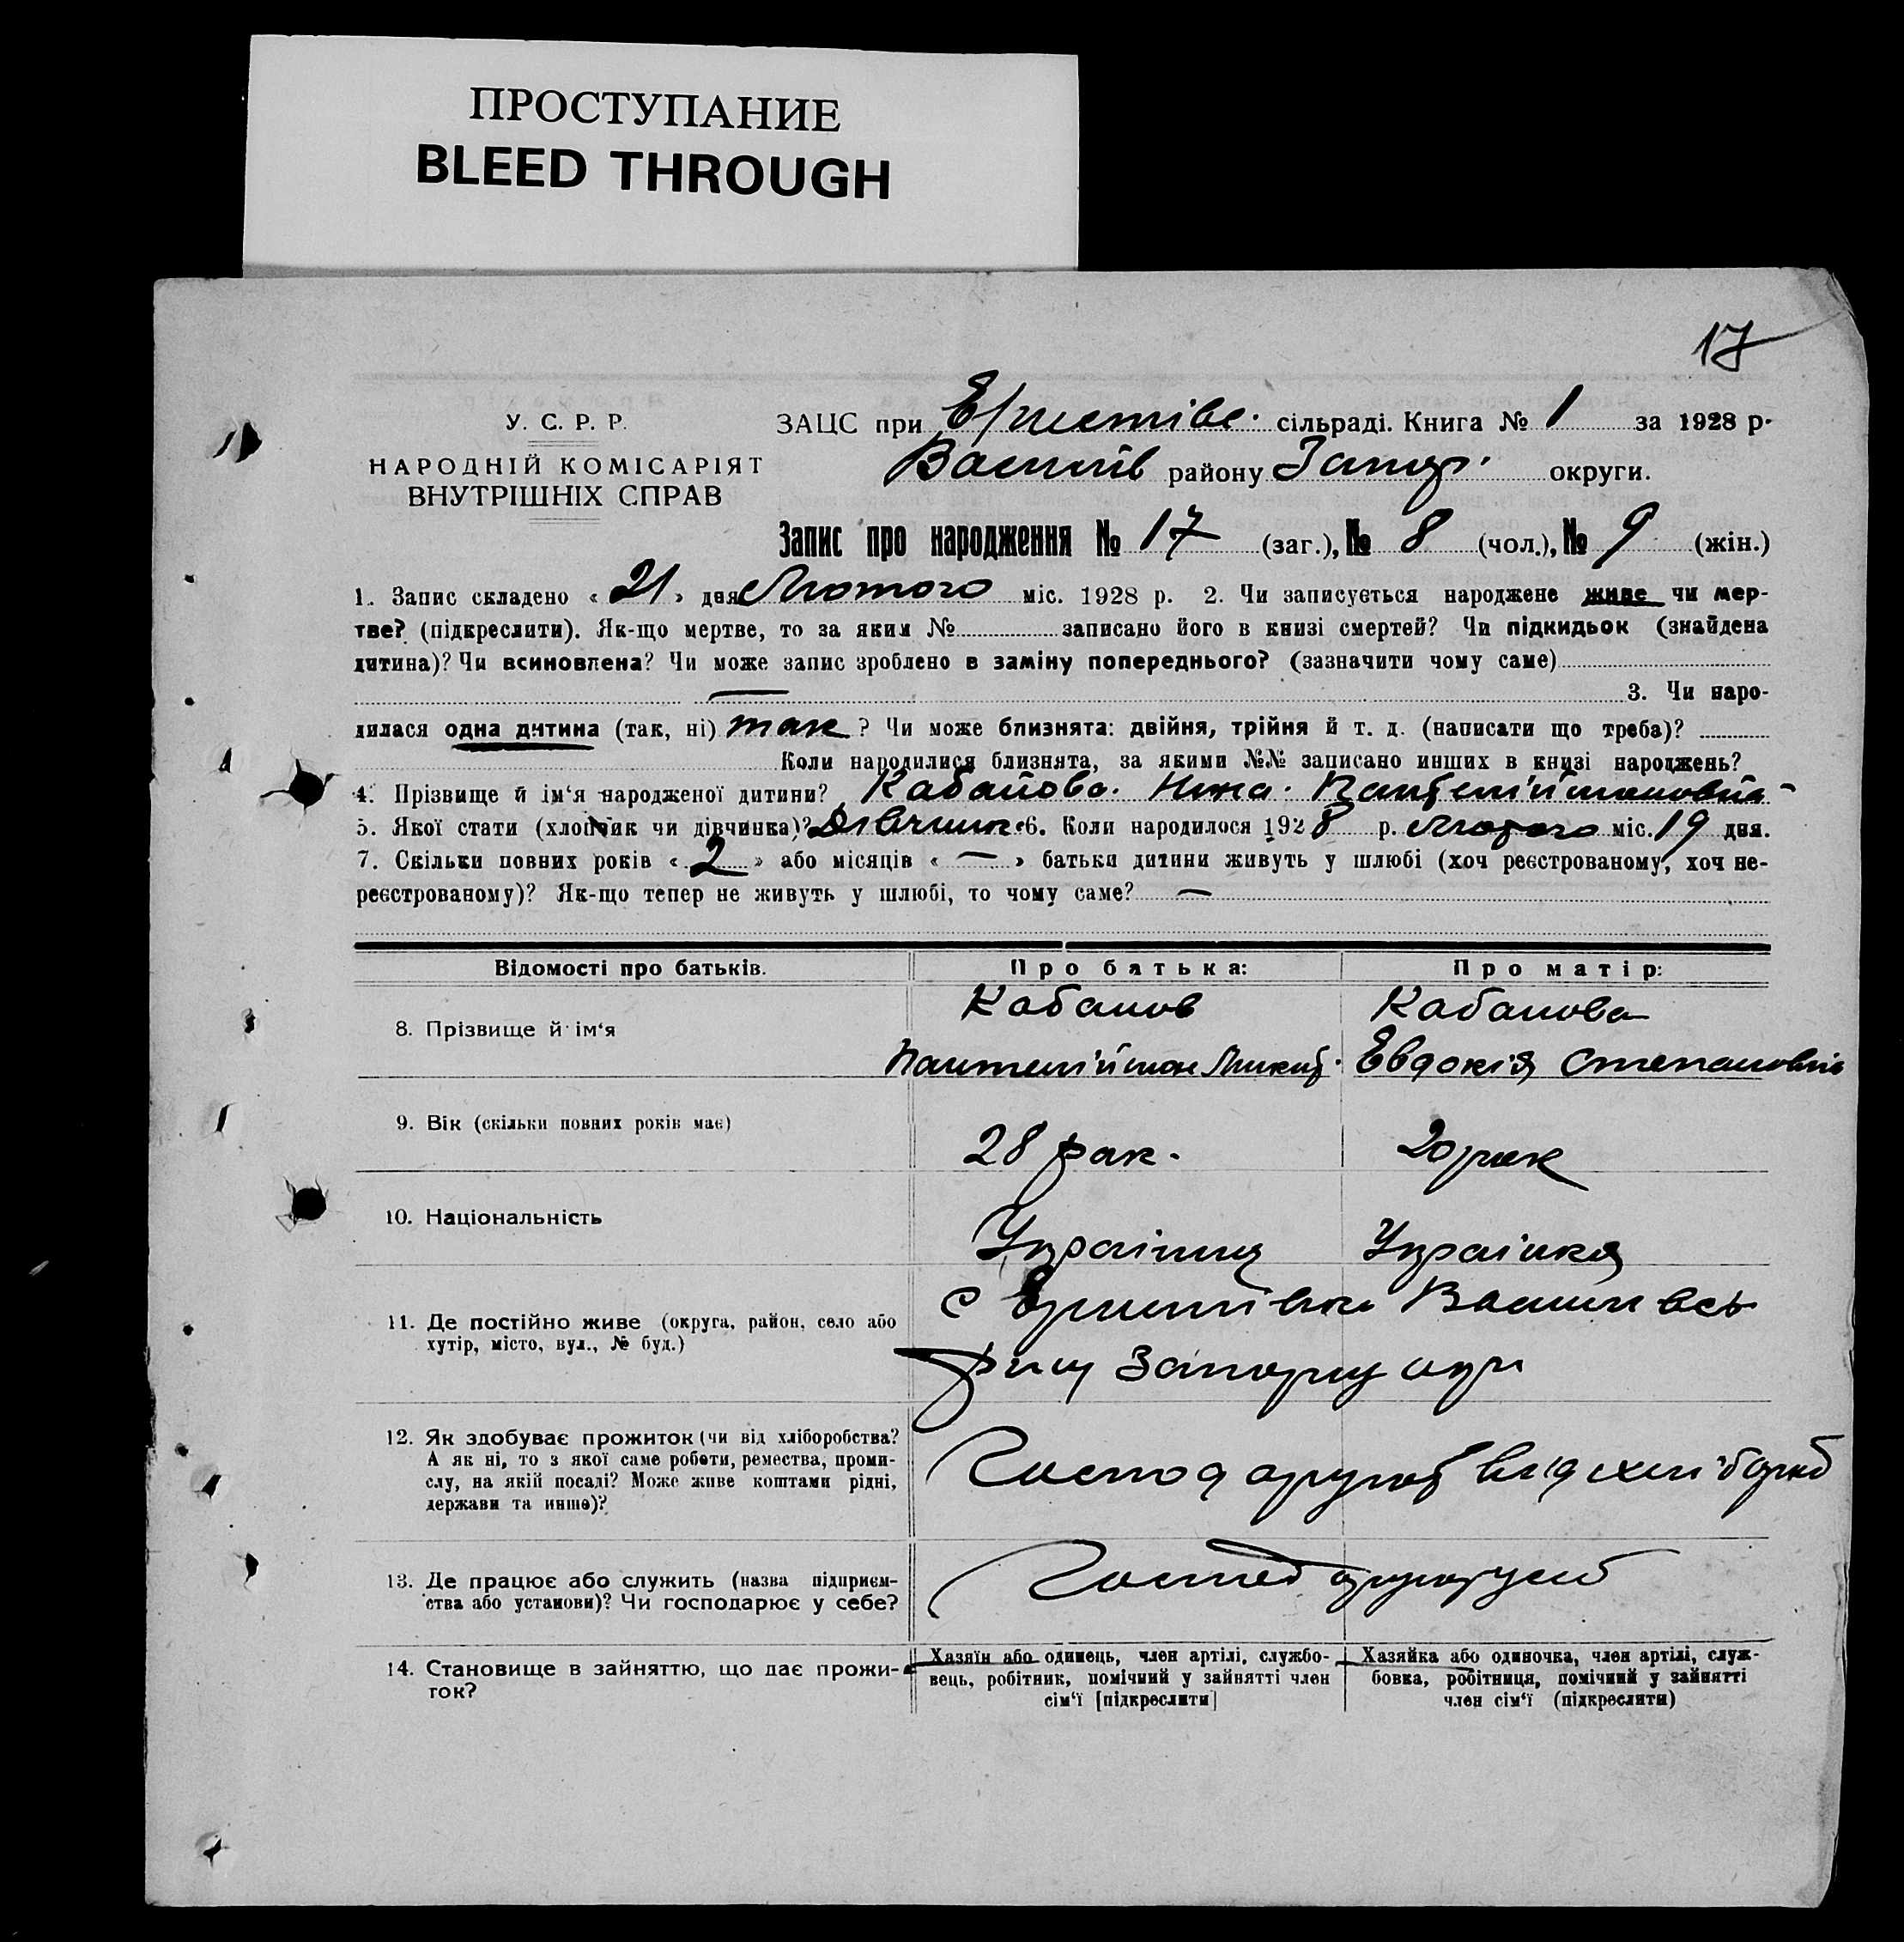 ПРОСТУПАНИЕ
BLEED THROUGH
17
У. С. Р. Р.
НАРОДНІЙ КОМІСАРІЯТ
ВНУТРІШНІХ СПРАВ
ЗАЦС при Ористівс. сільраді. Книга № 1 за 1928 р.
Василів району Запор. округи.
Запис про народження № 17 (заг.), № 8 (чол.), № 9 (жін.)
1. Запис складено « 21 » дня Лютого міс. 1928 р. 2. Чи записується народжене живе чи мер-
тве? (підкреслити). Як-що мертве, то за яким № записано його в книзі смертей? Чи підкидьок (знайдена
дитина)? Чи всиновлена? Чи може запис зроблено в заміну попереднього? (зазначити чому саме)
3. Чи наро-
дилася одна дитина (так, ні) так ? Чи може близнята: двійня, трійня й т. д. (написати що треба)?
Коли народилися близнята, за якими №№ записано инших в книзі народжень?
4. Прізвище й ім‘я народженої дитини? Кабанова Нина
5. Якої стати (хлопчик чи дівчинка)? Дівчинк 6. Коли народилося 1928 р. Лютого міс. 19 дня.
7. Скільки повних років « 2 » або місяців « — » батьки дитини живуть у шлюбі (хоч реєстрованому, хоч не-
реєстрованому)? Як-що тепер не живуть у шлюбі, то чому саме? —
Відомості про батьків.
Про батька:
Про матір:
8. Прізвище й ім‘я
Кабанов
Пантелійман Микит.
Кабанова
Евдокія Степановна
9. Вік (скільки повних років має)
28 рок.
20 рок
10. Національність
Українця
Українка
11. Де постійно живе (округа, район, село або
хутір, місто, вул., № буд.)
с Василівсь
Запорізц окри
12. Як здобуває прожиток (чи від хліборобства?
А як ні, то з якої саме роботи, ремества, проми-
слу, на якій посаді? Може живе коштами рідні,
держави та инше)?
від хліборнб
13. Де працює або служить (назва підприєм-
ства або установи)? Чи господарює у себе?
14. Становище в зайняттю, що дає прожи-
ток?
Хазяїн або одинець, член артілі, службо-
вець, робітник, помічний у зайнятті член
сім‘ї [підкреслити]
Хазяйка або одиночка, член артілі, служ-
бовка, робітниця, помічний у зайнятті
член сім‘ї (підкреслити)